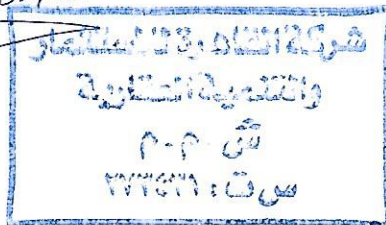 شركة القادرة للاستثمار
والتنمية العقارية
ش.م.م
س.ت: